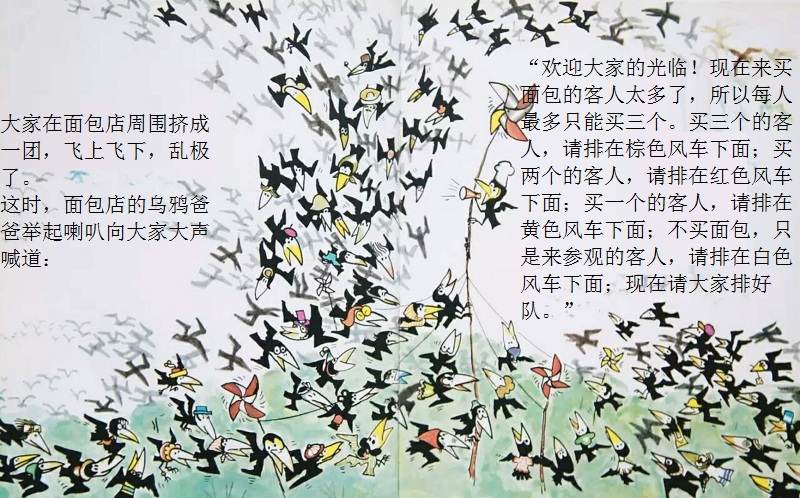 大家在面包店周围挤成
一团，飞上飞下，乱极
了。
这时，面包店的乌鸦爸
爸举起喇叭向大家大声
喊道：
“欢迎大家的光临！现在来买
面包的客人太多了，所以每人
最多只能买三个。买三个的客
人，请排在棕色风车下面；买
两个的客人，请排在红色风车
下面；买一个的客人，请排在
黄色风车下面；不买面包，只
是来参观的客人，请排在白色
风车下面；现在请大家排好
队。”